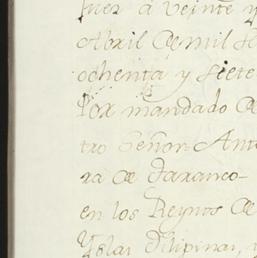 fuez à veinte y
Abril de mil se
ochenta y siete
Por mandado de
tro Señor Anto
ra de Taranco
en los Reynos de
Yslas Filipinas, y